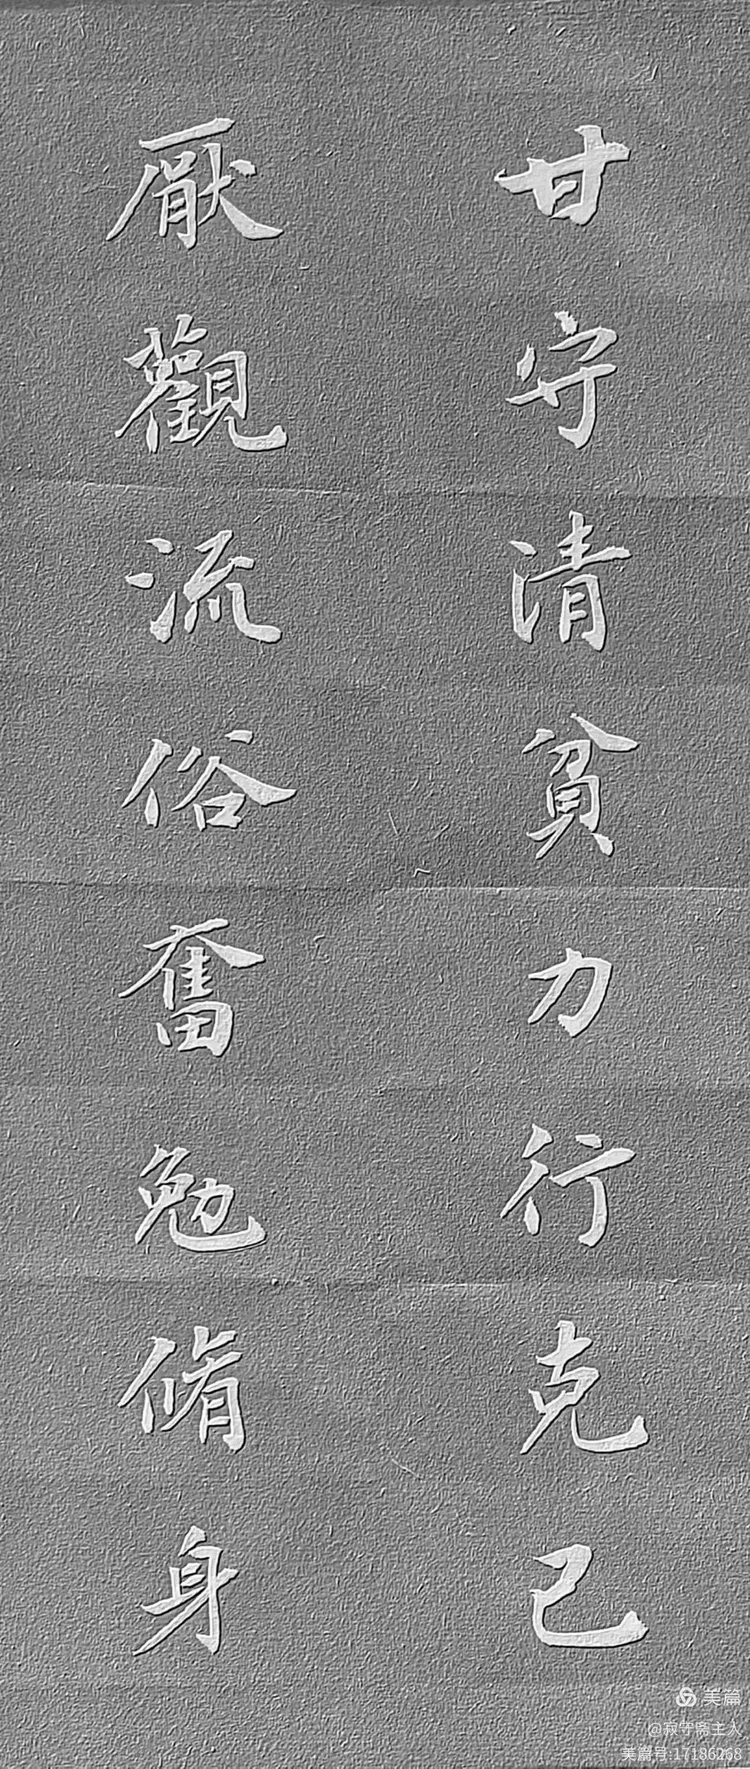 甘守清貧力行克己
厭觀流俗奮勉脩身
美篇
@寂守斋主人
美篇号:17186268